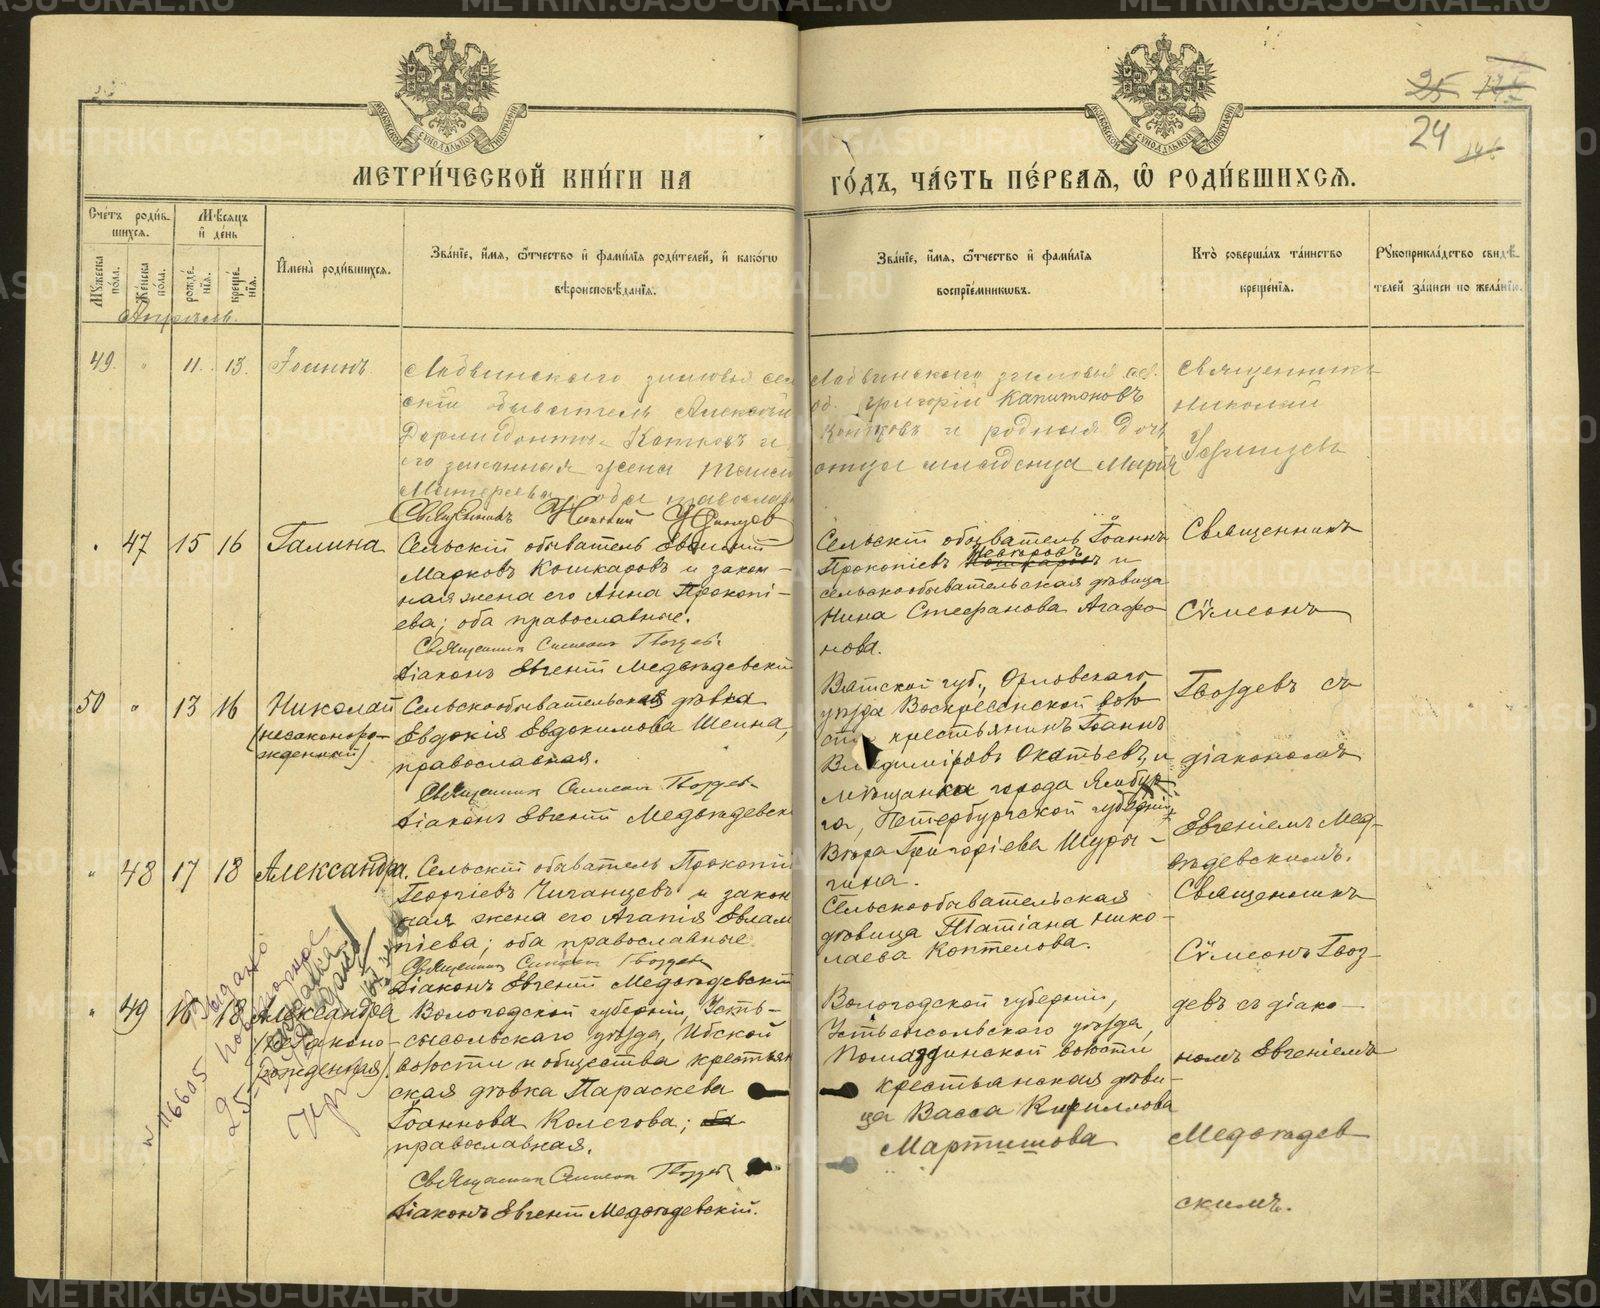 25
24
МОСКОВСКОЙ СѴНОДАЛЬНОЙ ТИПОГРАФІИ
МОСКОВСКОЙ СѴНОДАЛЬНОЙ ТИПОГРАФІИ
МЕТРИ́ЧЕСКОЙ КНИ́ГИ НА ГО́ДЪ, ЧА́СТЬ ПЕ́РВАЯ, Ѿ РОДИ́ВШИХСЯ.
Сче́тъ роди́в-
шихся.
Му́жеска по́ла.
Же́нска по́ла.
Мѣ́сяцъ
и҆ де́нь
рожде́нїя.
креще́нїя.
И҆мена̀ роди́вшихся.
Зва́нїе, и҆́мя, ѻ҆́тчество и҆ фами́лїя роди́телей, и҆ како́гѡ
вѣроисповѣ́данїя.
Зва́нїе, и҆́мя, ѻ҆́тчество и҆ фами́лїя
воспрїе́мникѡвъ.
Кто̀ соверша́лъ та́инство
креще́нїя.
Рꙋкоприкла́дство свидѣ́-
телей за́писи по жела́нїю.
Апрѣль.
49. " 11. 13. Іоаннъ
скій обыватель Алексѣй
его законная жена
Священникъ Николай
об. Григорій Капитоновъ
и родная дочь
отца младенца Марія
Священникъ
Николай
" 47 15 16 Галина
Сельскій обыватель Евгеній
Марковъ Кошкаровъ и закон-
ная жена его Анна Прокопі-
ева; оба православные.
Священникъ Симеонъ Гвоздевъ
Діаконъ Евгеній Медвѣдевскій
Сельскій обыватель Іоаннъ
Прокопіевъ и
сельскообывательская дѣвица
Нина Стефанова Агафо-
нова.
Священникъ
Сѵмеонъ
50 " 13 16 Николай
(незаконоро-
жденный)
Сельскообывательская дѣвка
Евдокія Евдокимова Шеина,
православная.
Священникъ Симеонъ Гвоздевъ
Діаконъ Евгеній Медвѣдевскій
Вятской губ., Орловскаго
уѣзда Воскресенской воло-
сти крестьянинъ Іоаннъ
Владиміровъ Окатьевъ, и
мѣщанка города Ямбур-
га, Петербургской губерніи
Вѣра Григоріева Шуры-
гина.
Гвоздевъ съ
діакономъ
Евгеніемъ Мед-
вѣдевскимъ.
" 48 17 18 Александра.
Сельскій обыватель Прокопій
Георгіевъ Чиганцевъ и закон-
ная жена его Агапія Евлам-
піева; оба православные.
Священникъ Симеонъ Гвоздевъ
Діаконъ Евгеній Медвѣдевскій
Сельскообывательская
дѣвица Татіана Нико-
лаева Коптелова.
Священникъ
Сѵмеонъ Гвоз-
" 49 16 18 Александра
(незаконо-
рожденная).
Вологодской губерніи, Усть-
сысольскаго уѣзда, Ибской
волости и общества крестьян-
ская дѣвка Параскева
Іоаннова Колегова; оба
православная.
Священникъ Симеонъ Гвоздевъ
Діаконъ Евгеній Медвѣдевскій.
Вологодской губерніи,
Устьсысольскаго уѣзда,
Помоздинской волости
крестьянская дѣви-
ца Васса Кириллова
Мартюшова
девъ съ діако-
номъ Евгеніемъ
Медвѣдев
скимъ.
Выдано
повторное
N 116605
METRIKI.GASO-URAL.RU